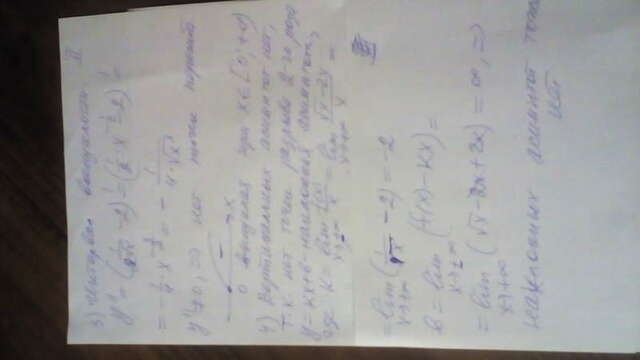 3) Интервал выпуклости II
y'' = (1/(2√x) - 2)' = (1/2 · x^(-1/2) - 2)' =
= -1/4 x^(-3/2) = - 1/(4·√x³)
y'' ≠ 0, ⇒ нет точки перегиб
0 x
выпуклая при x ∈ [0; +∞)
4) Вертикальных асимптот нет,
т.к нет точек разрыва 2-го рода
y = kx + b - наклонная асимптота,
где k = lim x→±∞ f(x)/x = lim x→+∞ (√x - 2x)/x =
= lim x→+∞ (1/√x - 2) = -2
b = lim x→±∞ (f(x) - kx) =
= lim x→+∞ (√x - 2x + 2x) = ∞, ⇒
наклонных асимптот тоже
нет